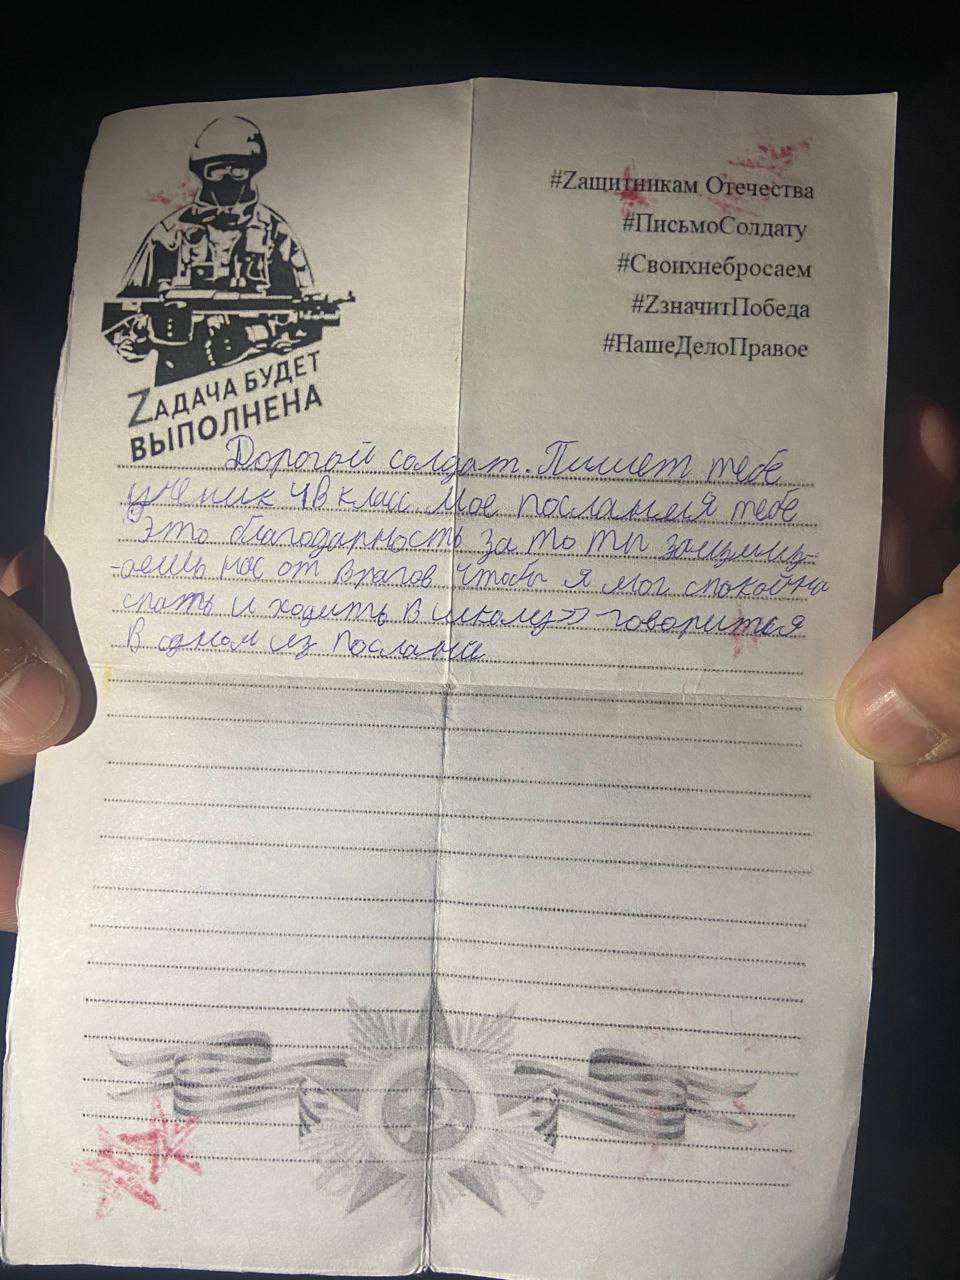 ZАДАЧА БУДЕТ
ВЫПОЛНЕНА
#Zащитникам Отечества
#ПисьмоСолдату
#Своихнебросаем
#ZзначитПобеда
#НашеДелоПравое
Дорогой солдат. Пишет тебе
ученик 4В класс. Мое послания тебе
Это благодарность за то ты защищ-
-аешь нас от врагов чтобы я мог спокойна
спать и ходить в школу» – говорится
В одном из послание